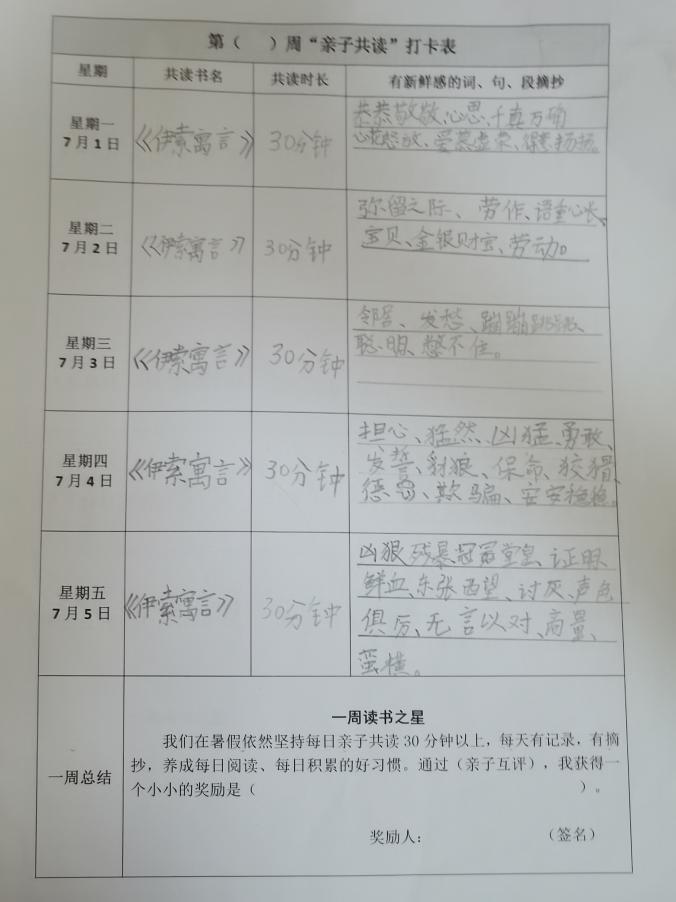 第（ ）周“亲子共读”打卡表
星期 共读书名 共读时长 有新鲜感的词、句、段摘抄
星期一
7月1日
《伊索寓言》 30分钟
恭恭敬敬、心思、千真万确
心花怒放、爱慕虚荣、得意扬扬。
星期二
7月2日
《伊索寓言》 30分钟
弥留之际、劳作、语重心长、
宝贝、金银财宝、劳动。
星期三
7月3日
《伊索寓言》 30分钟
邻居、发愁、蹦蹦跳跳、
聪明、憋不住。
星期四
7月4日
《伊索寓言》 30分钟
担心、猛然、凶猛、勇敢、
发誓、豺狼、保命、狡猾、
德高、欺骗、安安稳稳。
星期五
7月5日
《伊索寓言》 30分钟
凶狠、残暴、冠冕堂皇、证明、
鲜血、东张西望、讨厌、声色
俱厉、无言以对、商量、
蛮横。
一周总结
一周读书之星
我们在暑假依然坚持每日亲子共读30分钟以上，每天有记录，有摘
抄，养成每日阅读、每日积累的好习惯。通过（亲子互评），我获得一
个小小的奖励是（ ）。
奖励人： （签名）